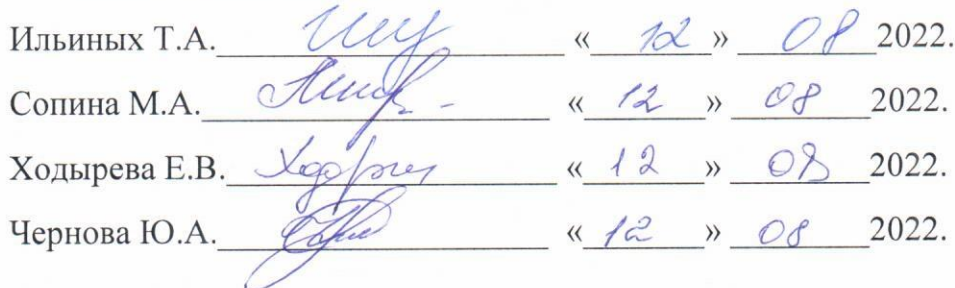 Ильиных Т.А. « 12 » 08 2022.
Сопина М.А. « 12 » 08 2022.
Ходырева Е.В. « 12 » 08 2022.
Чернова Ю.А. « 12 » 08 2022.